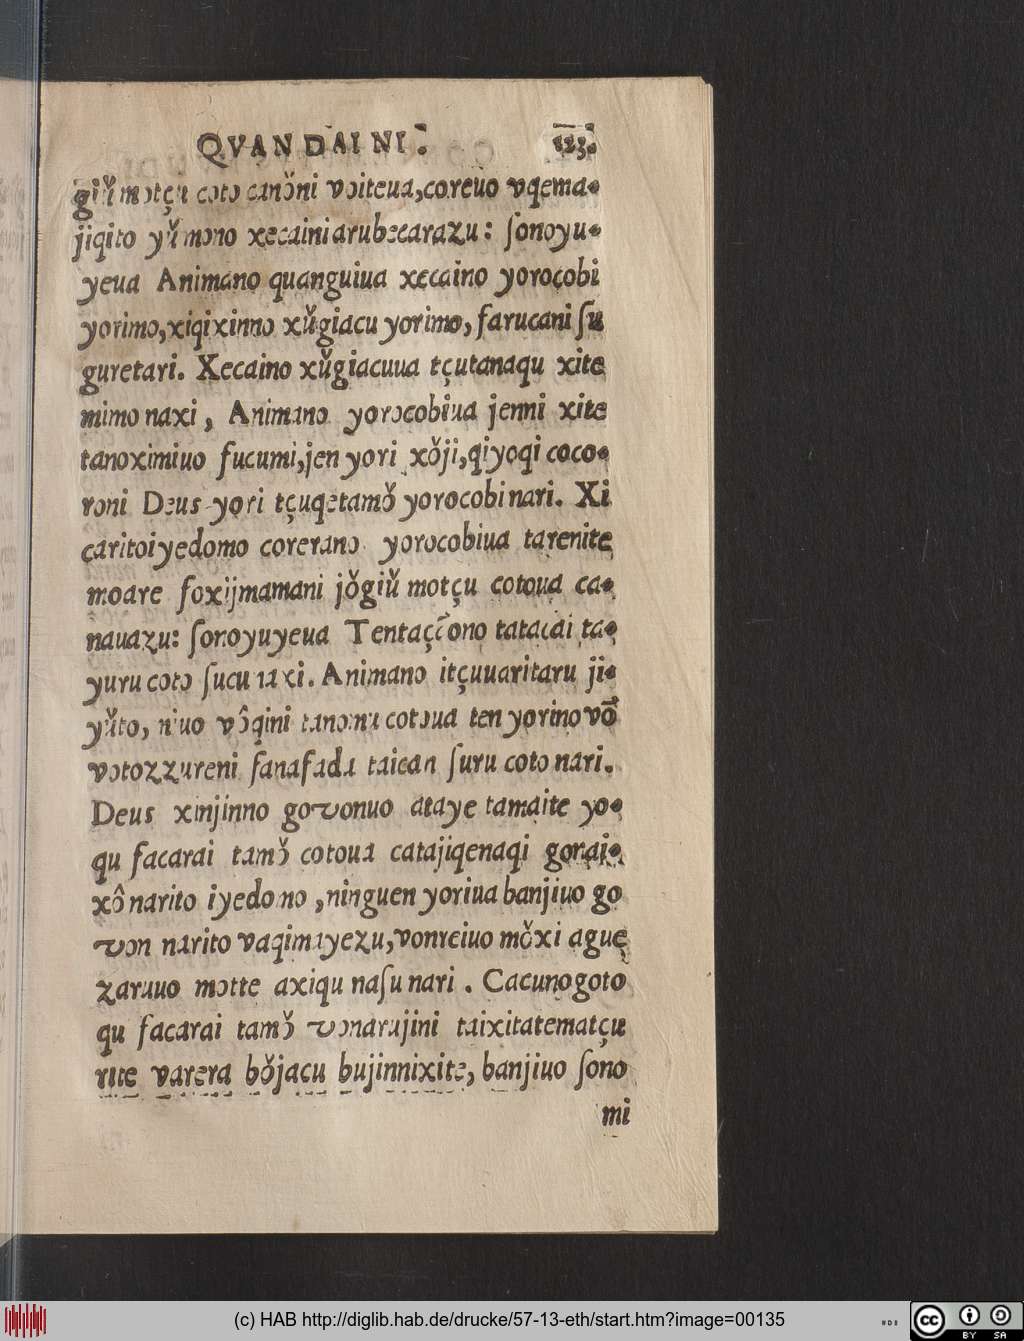 QVAN DAI NI. 123.
giŭ motçu coto canŏni voiteua, coreuo vqema-
jiqito yŭ mono xecainiarubecarazu: ſonoyu-
yeua Animano quanguiua xecaino yorocobi
yorimo, xiqixinno xŭgiacu yorimo, farucani ſu
guretari. Xecaino xŭgiacuua tçutanaqu xite
mimo naxi, Animano yorocobiua jenni xite
tanoximiuo fucumi, jen yori xŏji, qiyoqi coco-
roni Deus yori tçuqetamŏ yorocobi nari. Xi
caritoiyedomo corerano yorocobiua tarenite
moare foxijmamani jŏgiŭ motçu cotoua ca-
nauazu: ſonoyuyeua Tentaçõno tatacai ta-
yuru coto ſucunaxi. Animano itçuuaritaru ji-
yŭto, niuo vôqini tanomu cotoua ten yorino vō
votozzureni fanafada taican ſuru coto nari.
Deus xinjinno go vonuo ataye tamaite yo-
qu facarai tamŏ cotoua catajiqenaqi gorai-
xô narito iyedomo, ninguen yoriua banjiuo go
von narito vaqimayezu, vonreiuo mŏxi ague
zaruuo motte axiqu naſu nari. Cacunogoto
qu facarai tamŏ vonarujini taixitatematçu
rite varera bŏjacu bujinnixite, banjiuo ſono
mi
(c) HAB http://diglib.hab.de/drucke/57-13-eth/start.htm?image=00135
cc BY SA